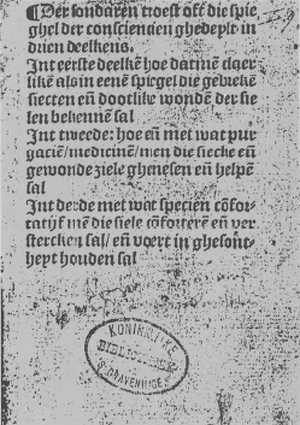 ¶Der sondaren troest oft die spie
ghel der consciencien ghedeylt in
drien deelkens.
Int eerste deelkē hoe datmē claer
likē als in eenē spiegel die gebrekē
siecten eñ dootlike wondē der sie
len bekennē sal
Int tweede: hoe eñ met wat pur
gaciē/medicinē/men die siecke eñ
gewonde ziele ghenesen eñ helpē
sal
Int derde met wat speciën cōfor-
tatijf mē die siele cōforterē eñ ver
stercken sal/ eñ voert in ghesont-
heyt houden sal
KONINKLIJKE
BIBLIOTHEEK
'S GRAVENHAGE